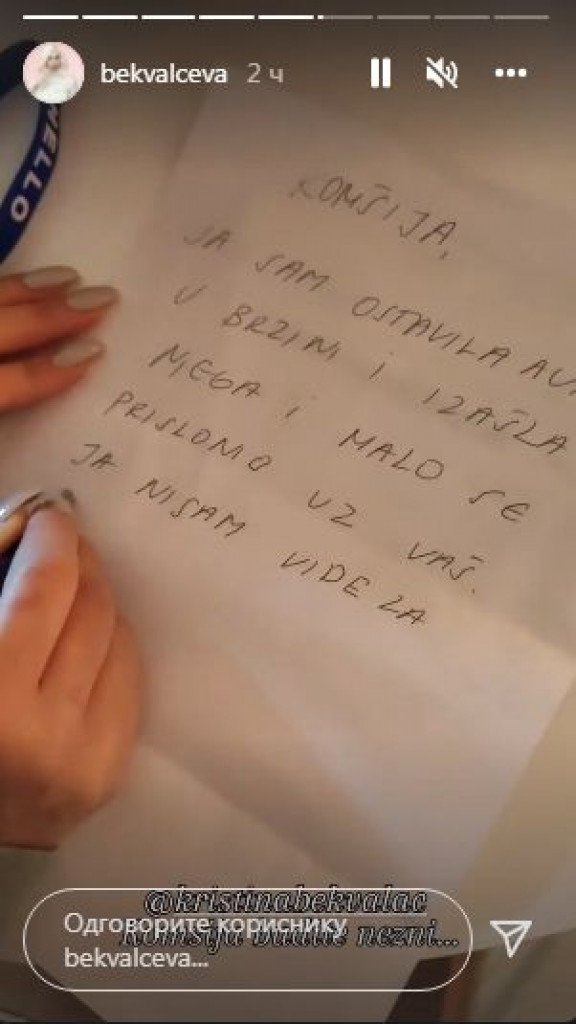 bekvalceva 2 ч
HELLO
KOMŠIJA,
JA SAM OSTAVILA
U BRZINI I IZAŠLA
NJEGA I MALO SE
PRISLONIO UZ VAŠ.
JA NISAM VIDELA
@kristinabekvalac
Komsija budite nezni...
Одговорите кориснику
bekvalceva...